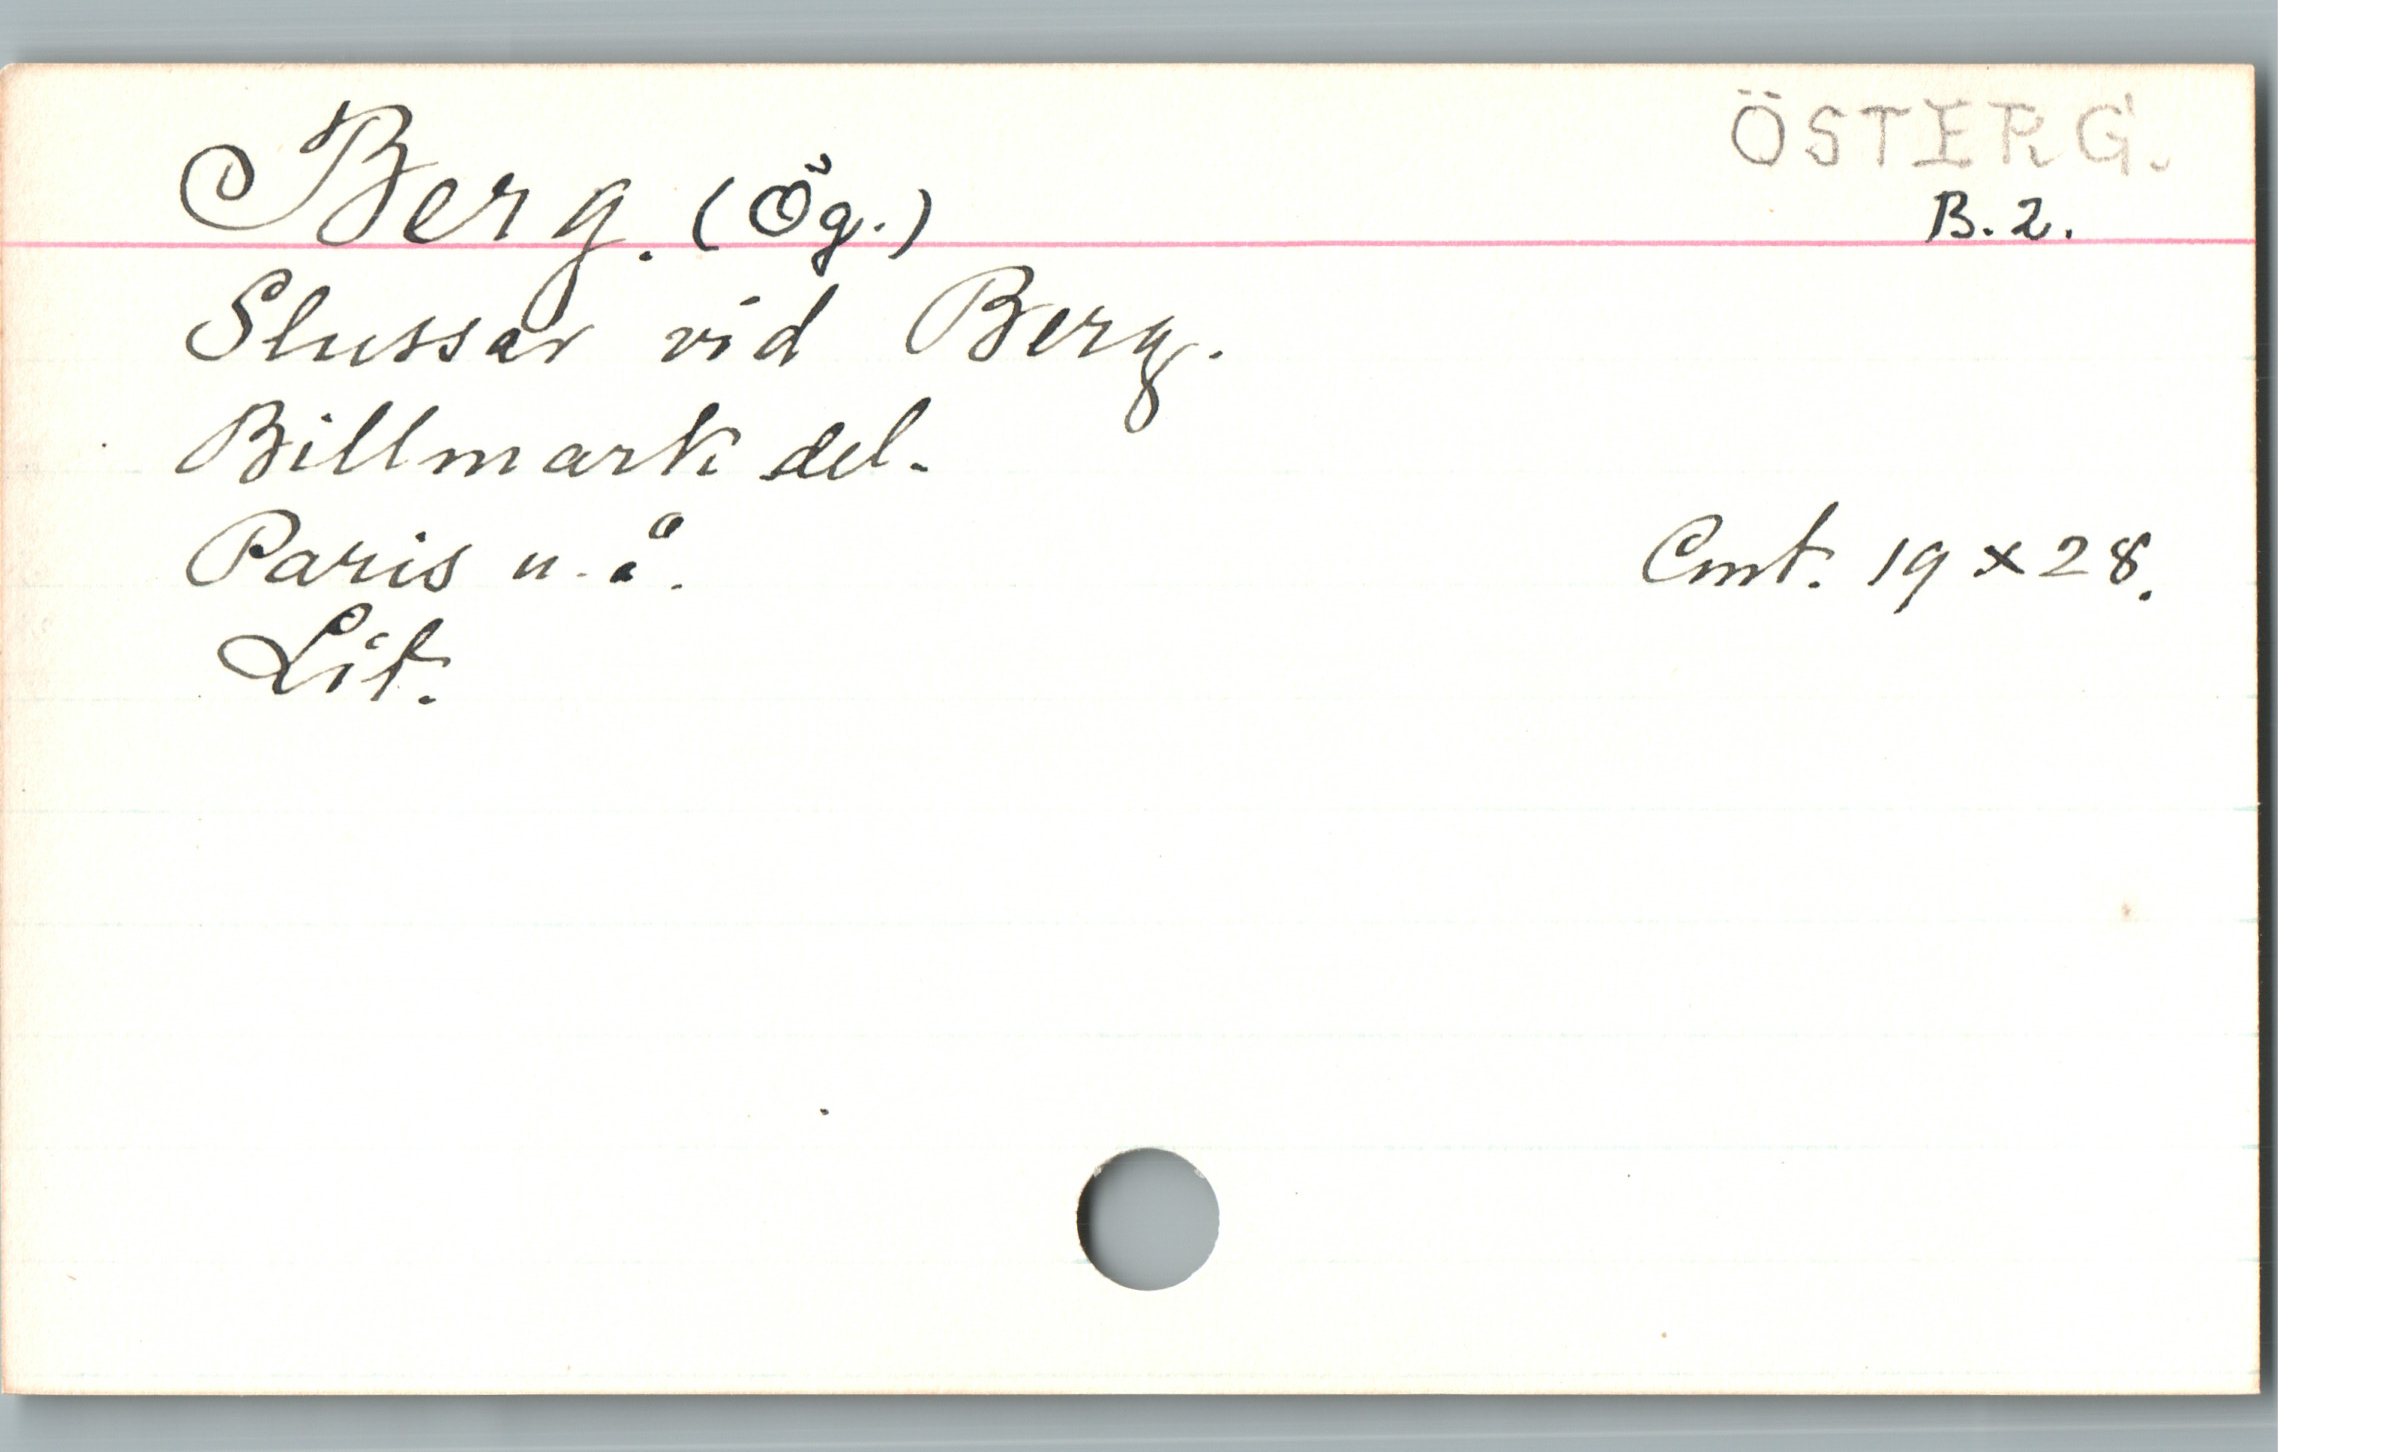 ÖSTERG.
Berg. (Ög.) B. 2.
Slussar vid Berg.
Billmark del.
Paris u. å. Cmt. 19 x 28.
Lit.